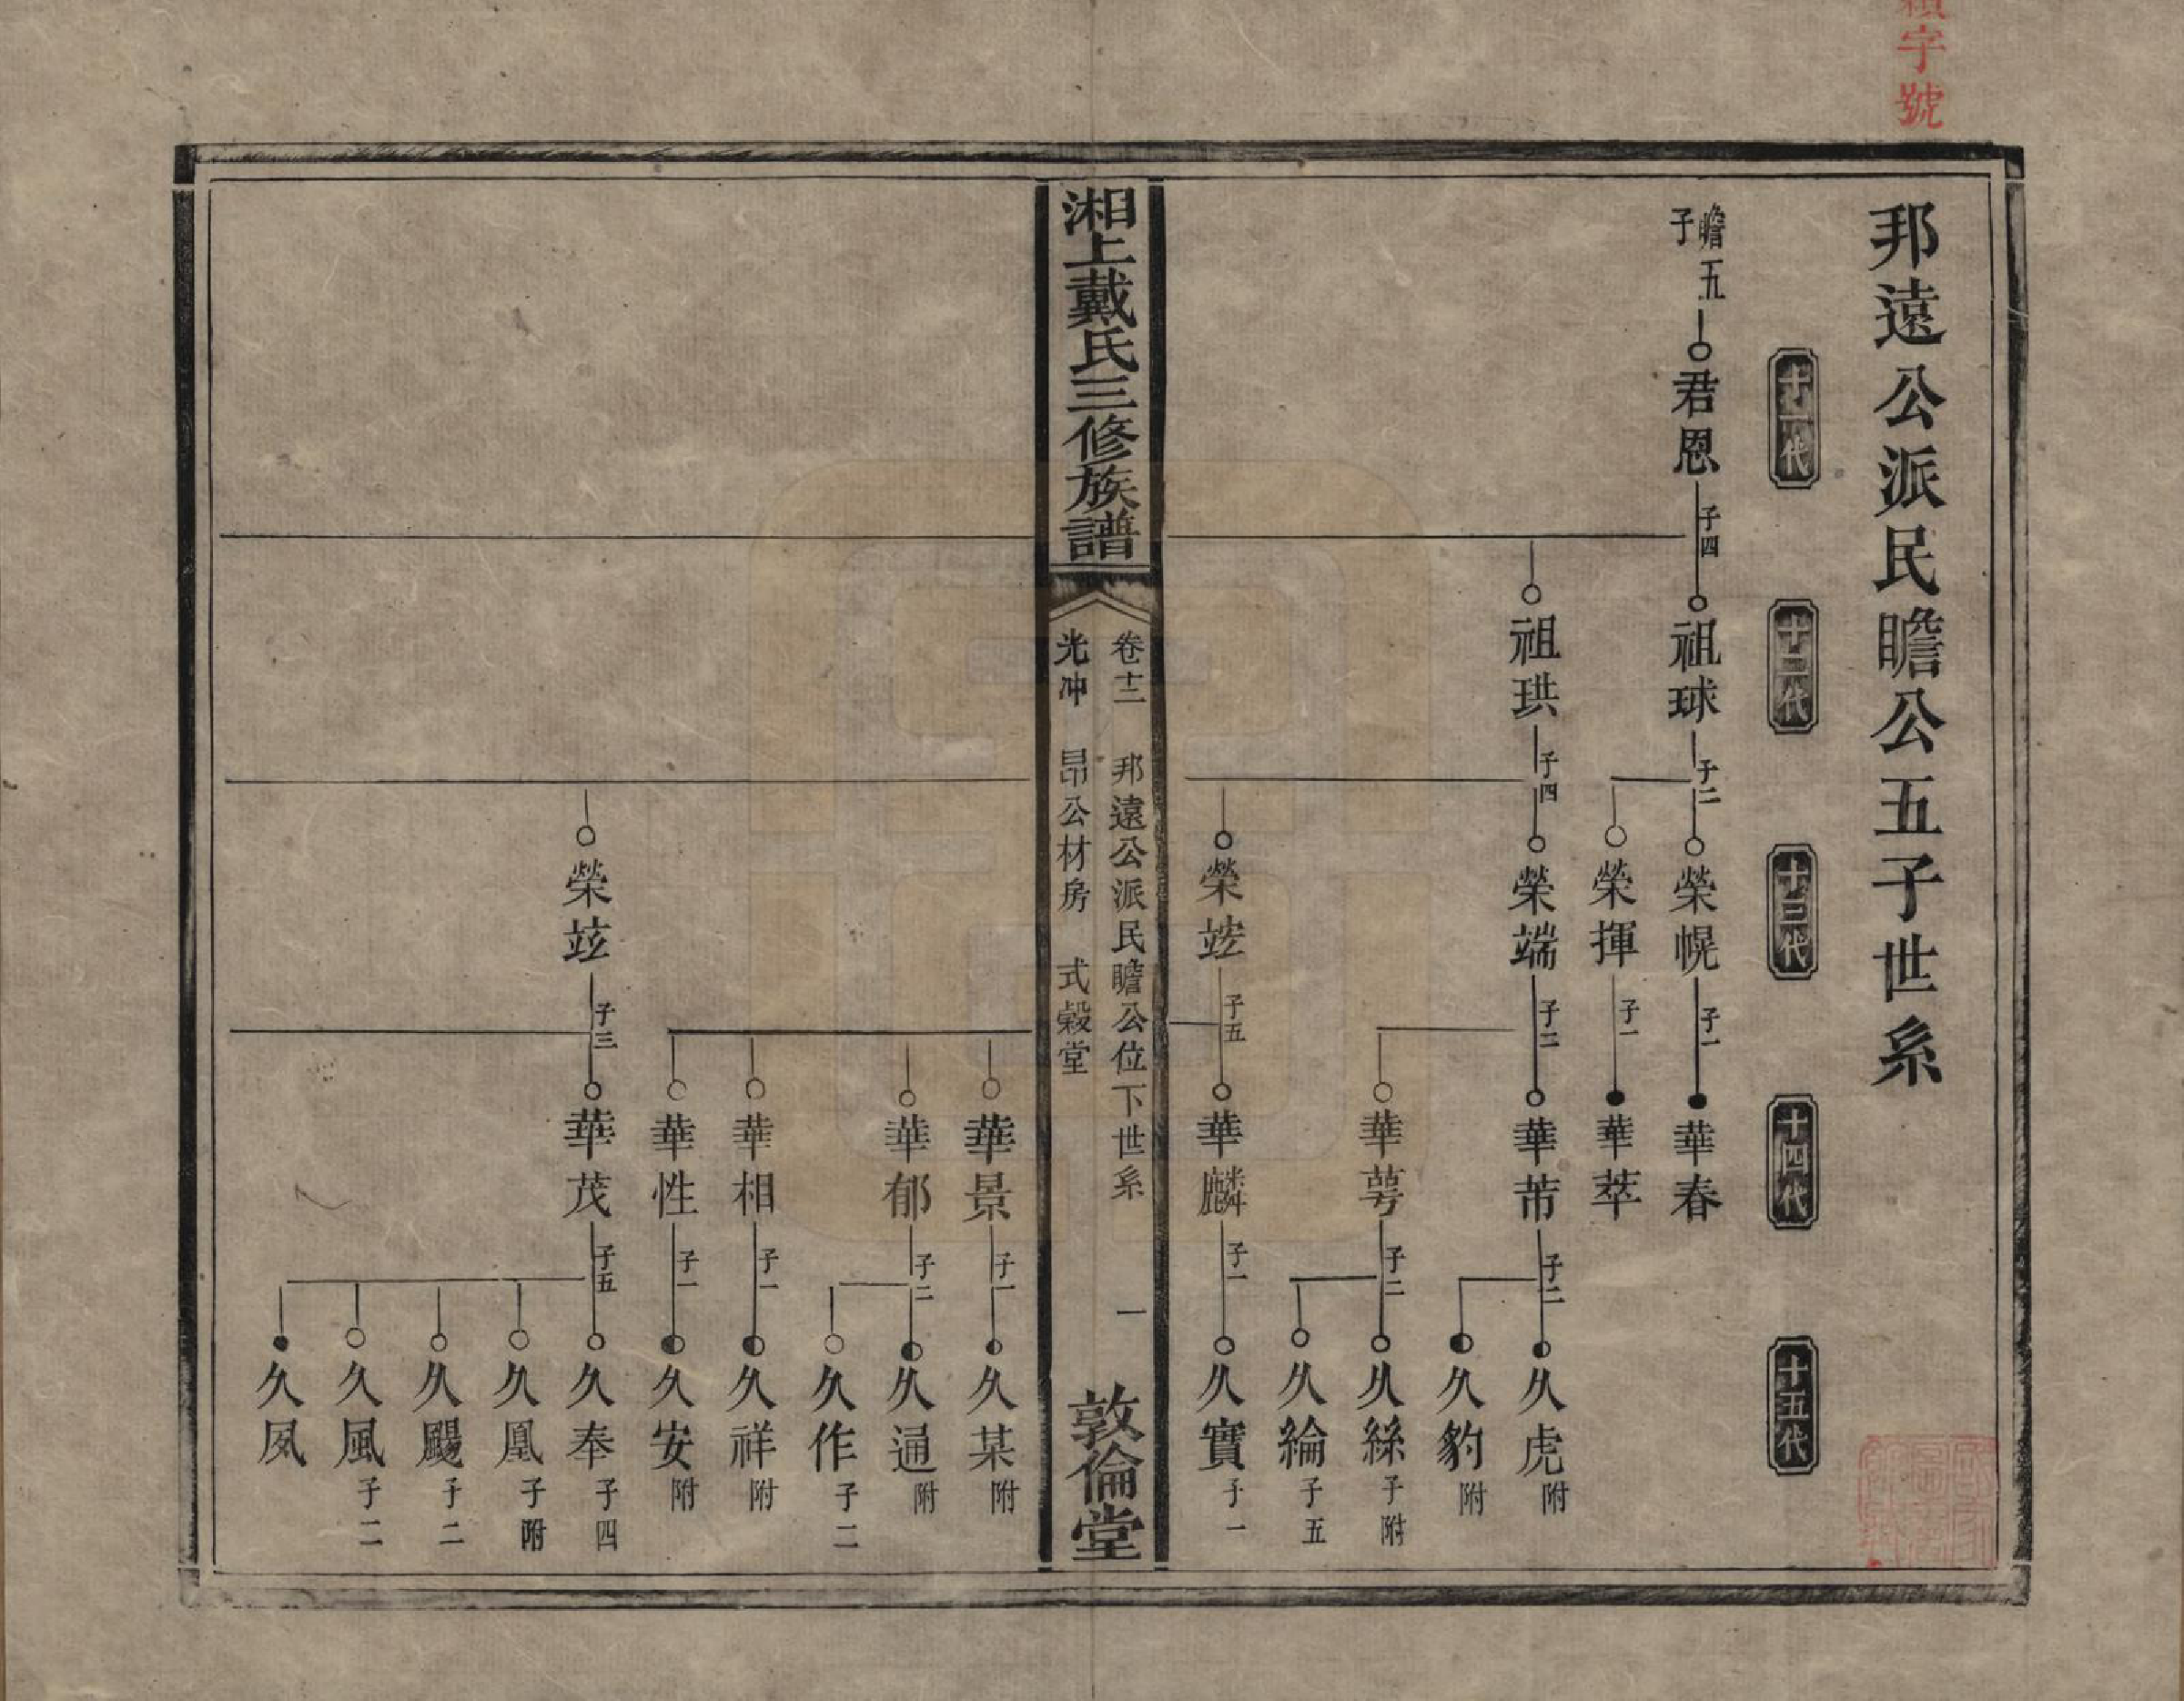 字號
邦遠公派民瞻公五子世系
十一代
十二代
十三代
十四代
十五代
瞻五
子
君恩
子四
祖球
子二
榮幌
子一
華春
榮揮
子一
華萃
祖珙
子四
榮端
子二
華芾
子二
久虎
附
久豹
附
華萼
子二
久絲
子附
久綸
子五
榮竤
子五
華麟
子一
久寶
子一
湘上戴氏三修族譜
卷十二 邦遠公派民瞻公位下世系 一
光冲 昂公材房 式榖堂
敦倫堂
華景
子一
久某
附
華郁
子二
久通
附
久作
子二
華相
子一
久祥
附
華性
子一
久安
附
榮竝
子三
華茂
子五
久奉
子四
久凰
子附
久颺
子二
久風
子二
久夙